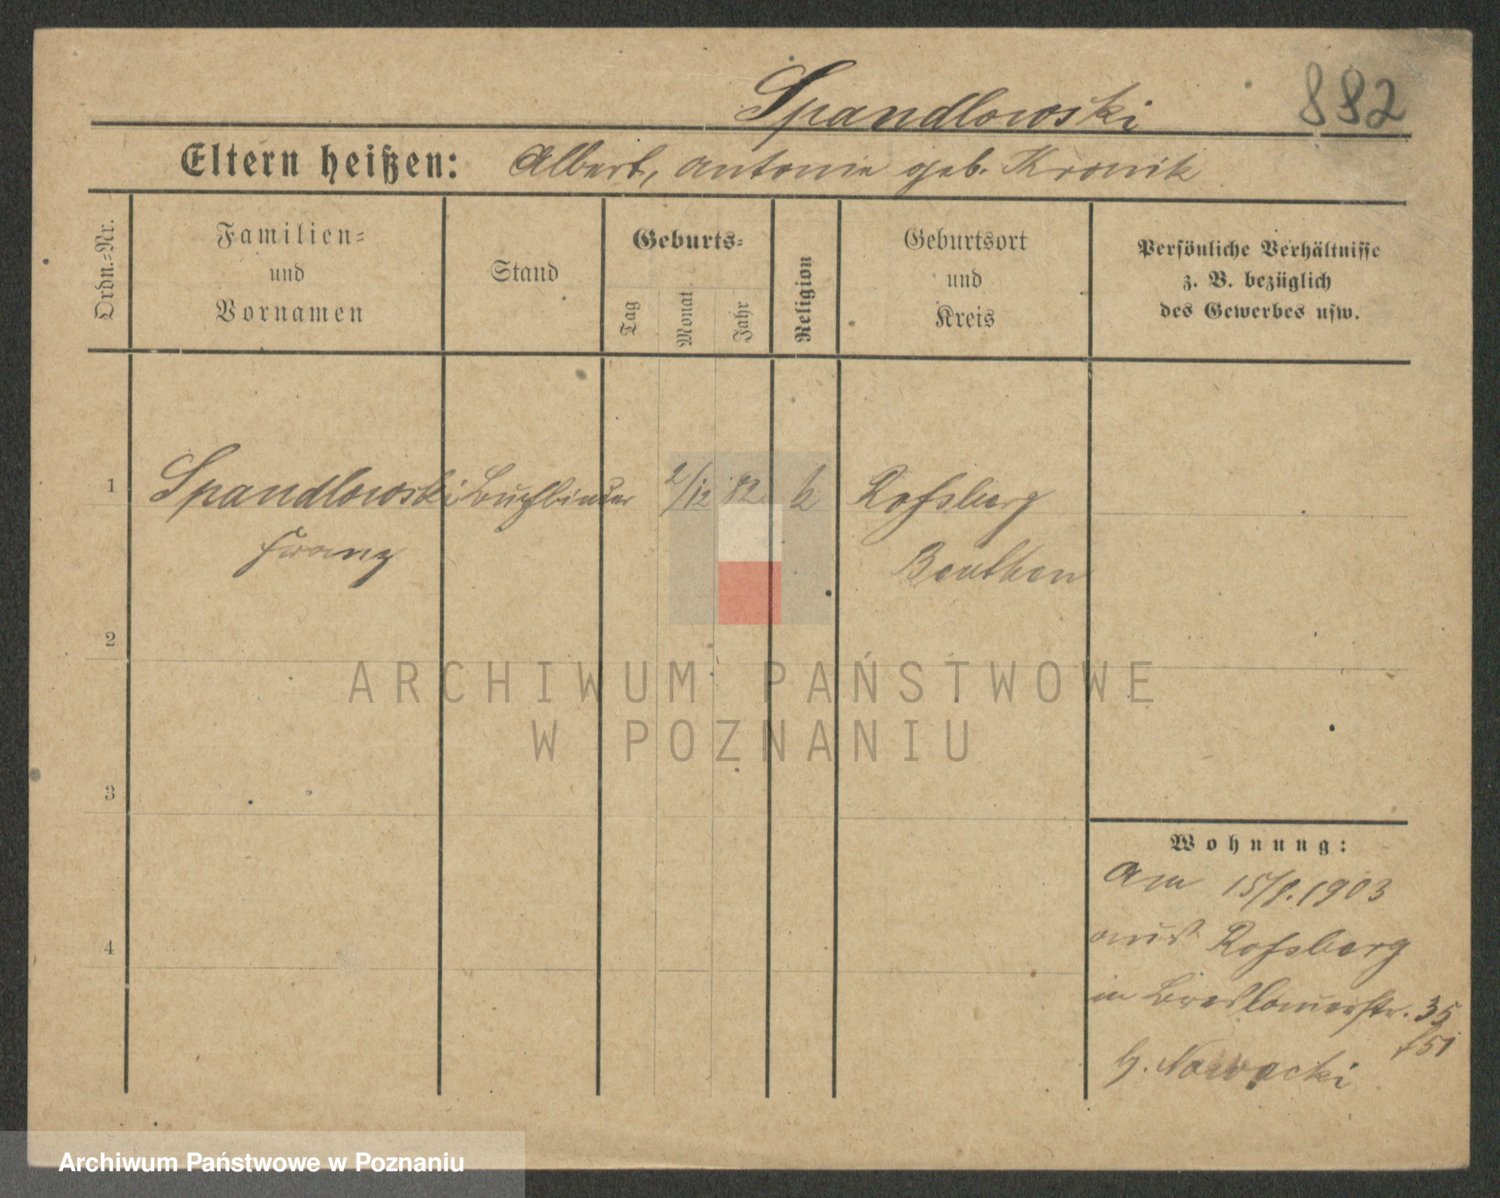 Spandlowski 882
Eltern heißen: Albert, Antonie geb. Kronik
Ordn.=Nr.
Familien=
und
Vornamen
Stand
Geburts=
Tag
Monat
Jahr
Religion
Geburtsort
und
Kreis
Persönliche Verhältnisse
z. B. bezüglich
des Gewerbes usw.
1 Spandlowski Buchbinder 2/12 82 k Roßberg
Franz Beuthen
2
3
4
Wohnung:
Am 15/8.1903
aus Roßberg
in Breslauerstr. 35
b. Nowacki
ARCHIWUM PAŃSTWOWE
W POZNANIU
Archiwum Państwowe w Poznaniu